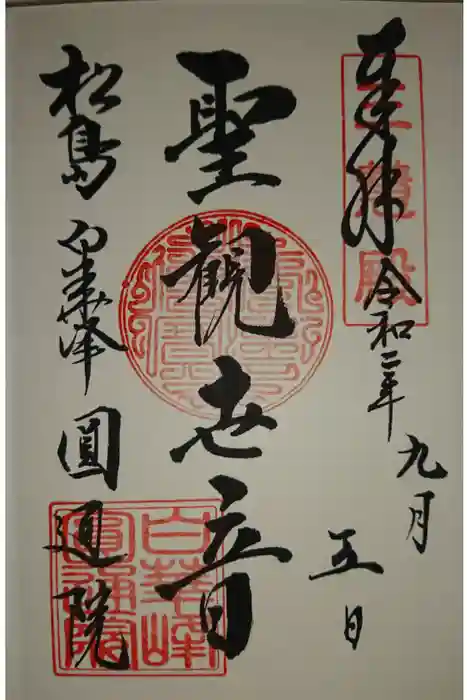 奉拝 令和二年九月五日
三慧殿
聖観世音
松島 白華峰 圓通院
白華峰圓通院